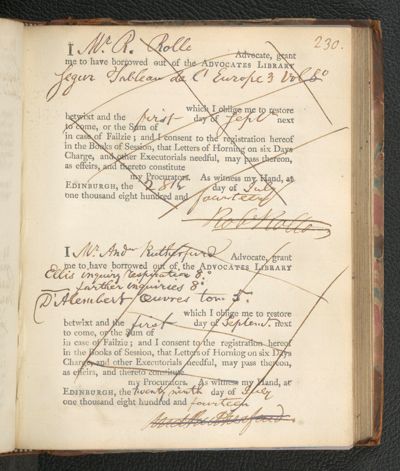 230.
I Mr R. Rolle Advocate, grant
me to have borrowed out of the ADVOCATES LIBRARY
Segur Tableau de l'Europe 3 Vol. 8o
which I oblige me to restore
betwixt and the first day of Septr next
to come, or the Sum of
in case of Failzie; and I consent to the registration hereof
in the Books of Session, that Letters of Horning on six Days
Charge, and other Executorials needful, may pass thereon,
as effeirs, and thereto constitute
my Procurators. As witness my Hand, at
EDINBURGH, the 28th day of July
one thousand eight hundred and fourteen
Rot Rollo
I Mr Andw Rutherfurd Advocate, grant
me to have borrowed out of the ADVOCATES LIBRARY
Ellis inquiry respiration 8o
further inquiries 8o
D'Alembert Œuvres tom 5.
which I oblige me to restore
betwixt and the first day of Septemr. next
to come, or the Sum of
in case of Failzie; and I consent to the registration hereof
in the Books of Session, that Letters of Horning on six Days
Charge, and other Executorials needful, may pass thereon,
as effeirs, and thereto constitute
my Procurators. As witness my Hand, at
EDINBURGH, the twenty ninth day of July
one thousand eight hundred and fourteen
Andw Rutherfurd